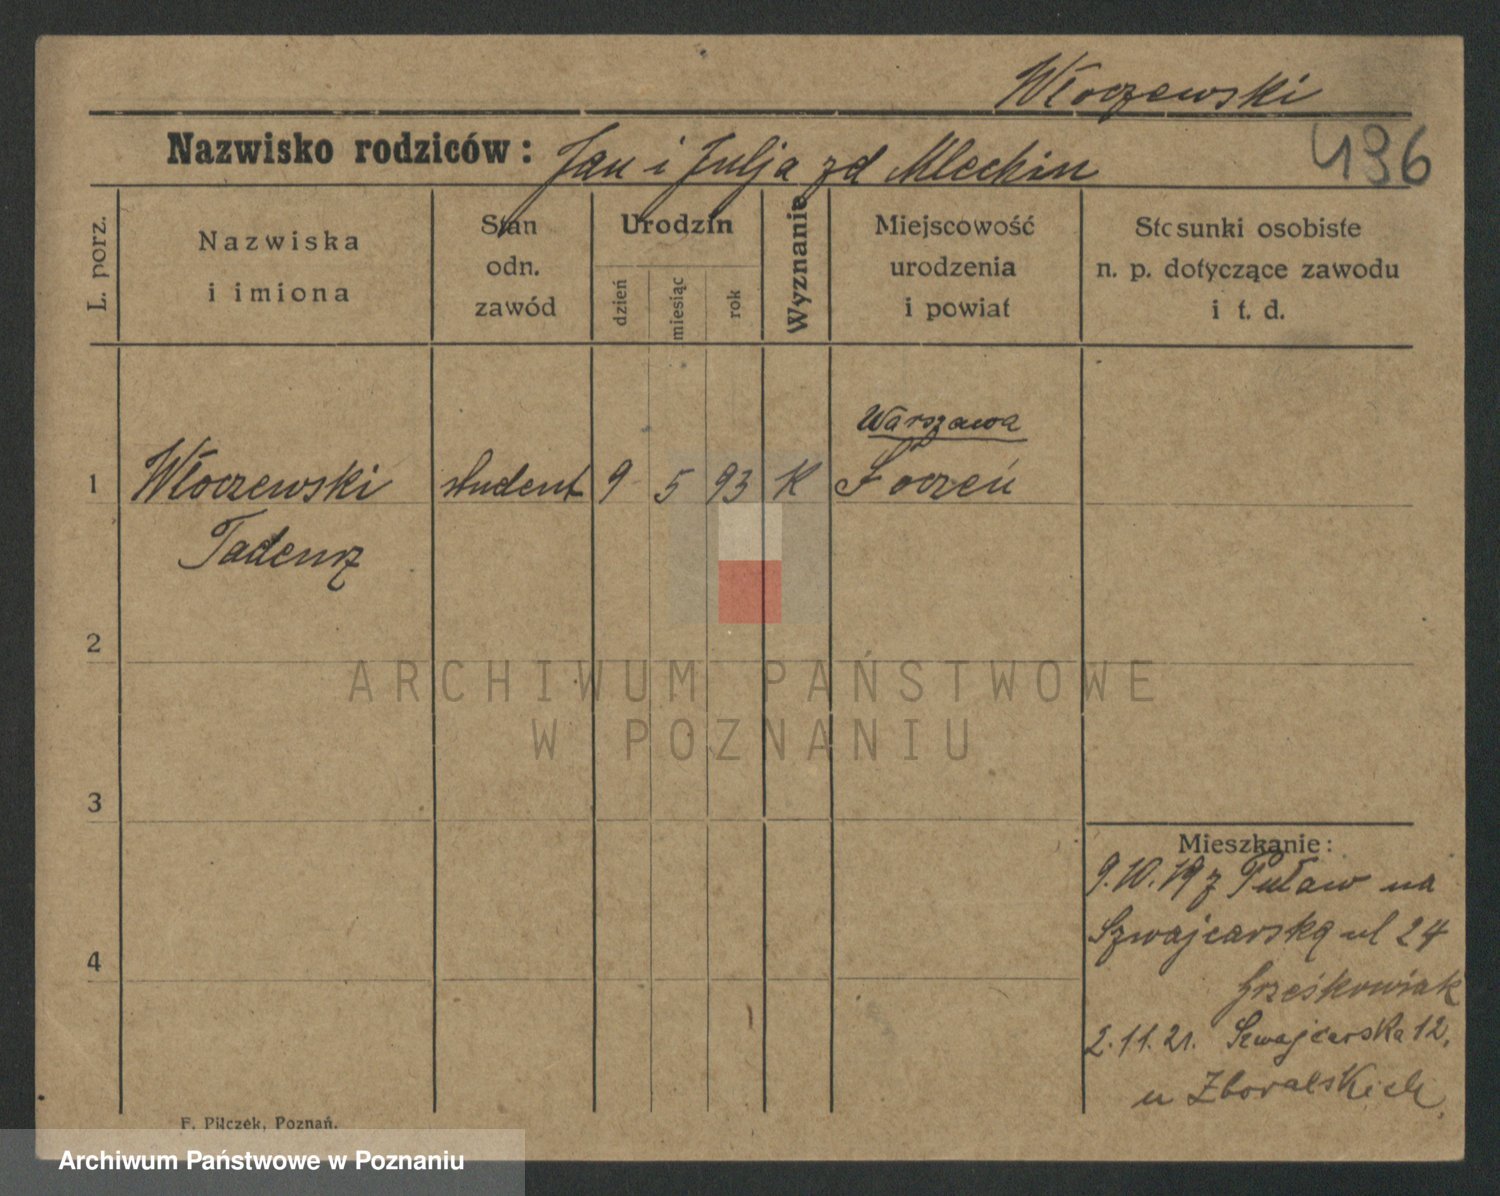 Włoczewski
Nazwisko rodziców: Jan i Julja zd Mlechin
496
L. porz.
Nazwiska
i imiona
Stan
odn.
zawód
Urodzin
dzień
miesiąc
rok
Wyznanie
Miejscowość
urodzenia
i powiat
Stosunki osobiste
n. p. dotyczące zawodu
i t. d.
Warszawa
1 Włoczewski student 9 5 93 K Łoczeń
Tadeusz
2
ARCHIWUM PAŃSTWOWE
W POZNANIU
3
Mieszkanie:
9.10.19 z Puław na
Szwajcarską ul 24
4
Grześkowiak
2.11.21. Szwajcarska 12.
u Zboralskich.
F. Pilczek, Poznań.
Archiwum Państwowe w Poznaniu